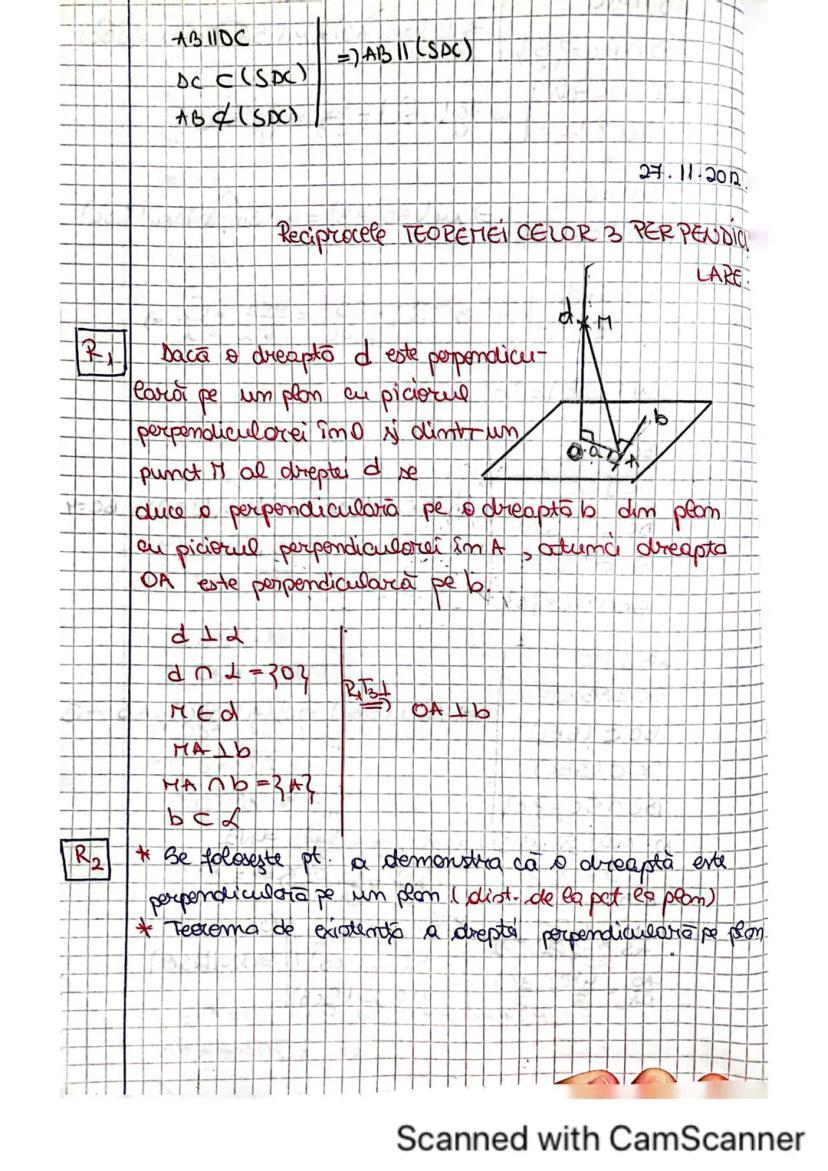 AB || DC
DC ⊂ (SDC) => AB || (SDC)
AB ⊄ (SDC)
27.11.2012.
Reciprocele TEOREMEI CELOR 3 PERPENDICU
LARE.
d M
b
O a A
R1 Dacă o dreaptă d este perpendicu-
lară pe un plan cu piciorul
perpendicularei în O și dintr un
punct M al dreptei d se
duce o perpendiculară pe o dreaptă b din plan
cu piciorul perpendicularei în A, atunci dreapta
OA este perpendiculară pe b.
d ⊥ α
d ∩ ⊥ = {O}
M ∈ d R1T3⊥ => OA ⊥ b
MA ⊥ b
MA ∩ b = {A}
b ⊂ α
R2 * Se folosește pt. a demonstra că o dreaptă este
perpendiculară pe un plan (dist. de la pct la plan)
* Teorema de existență a dreptei perpendiculară pe plan
Scanned with CamScanner